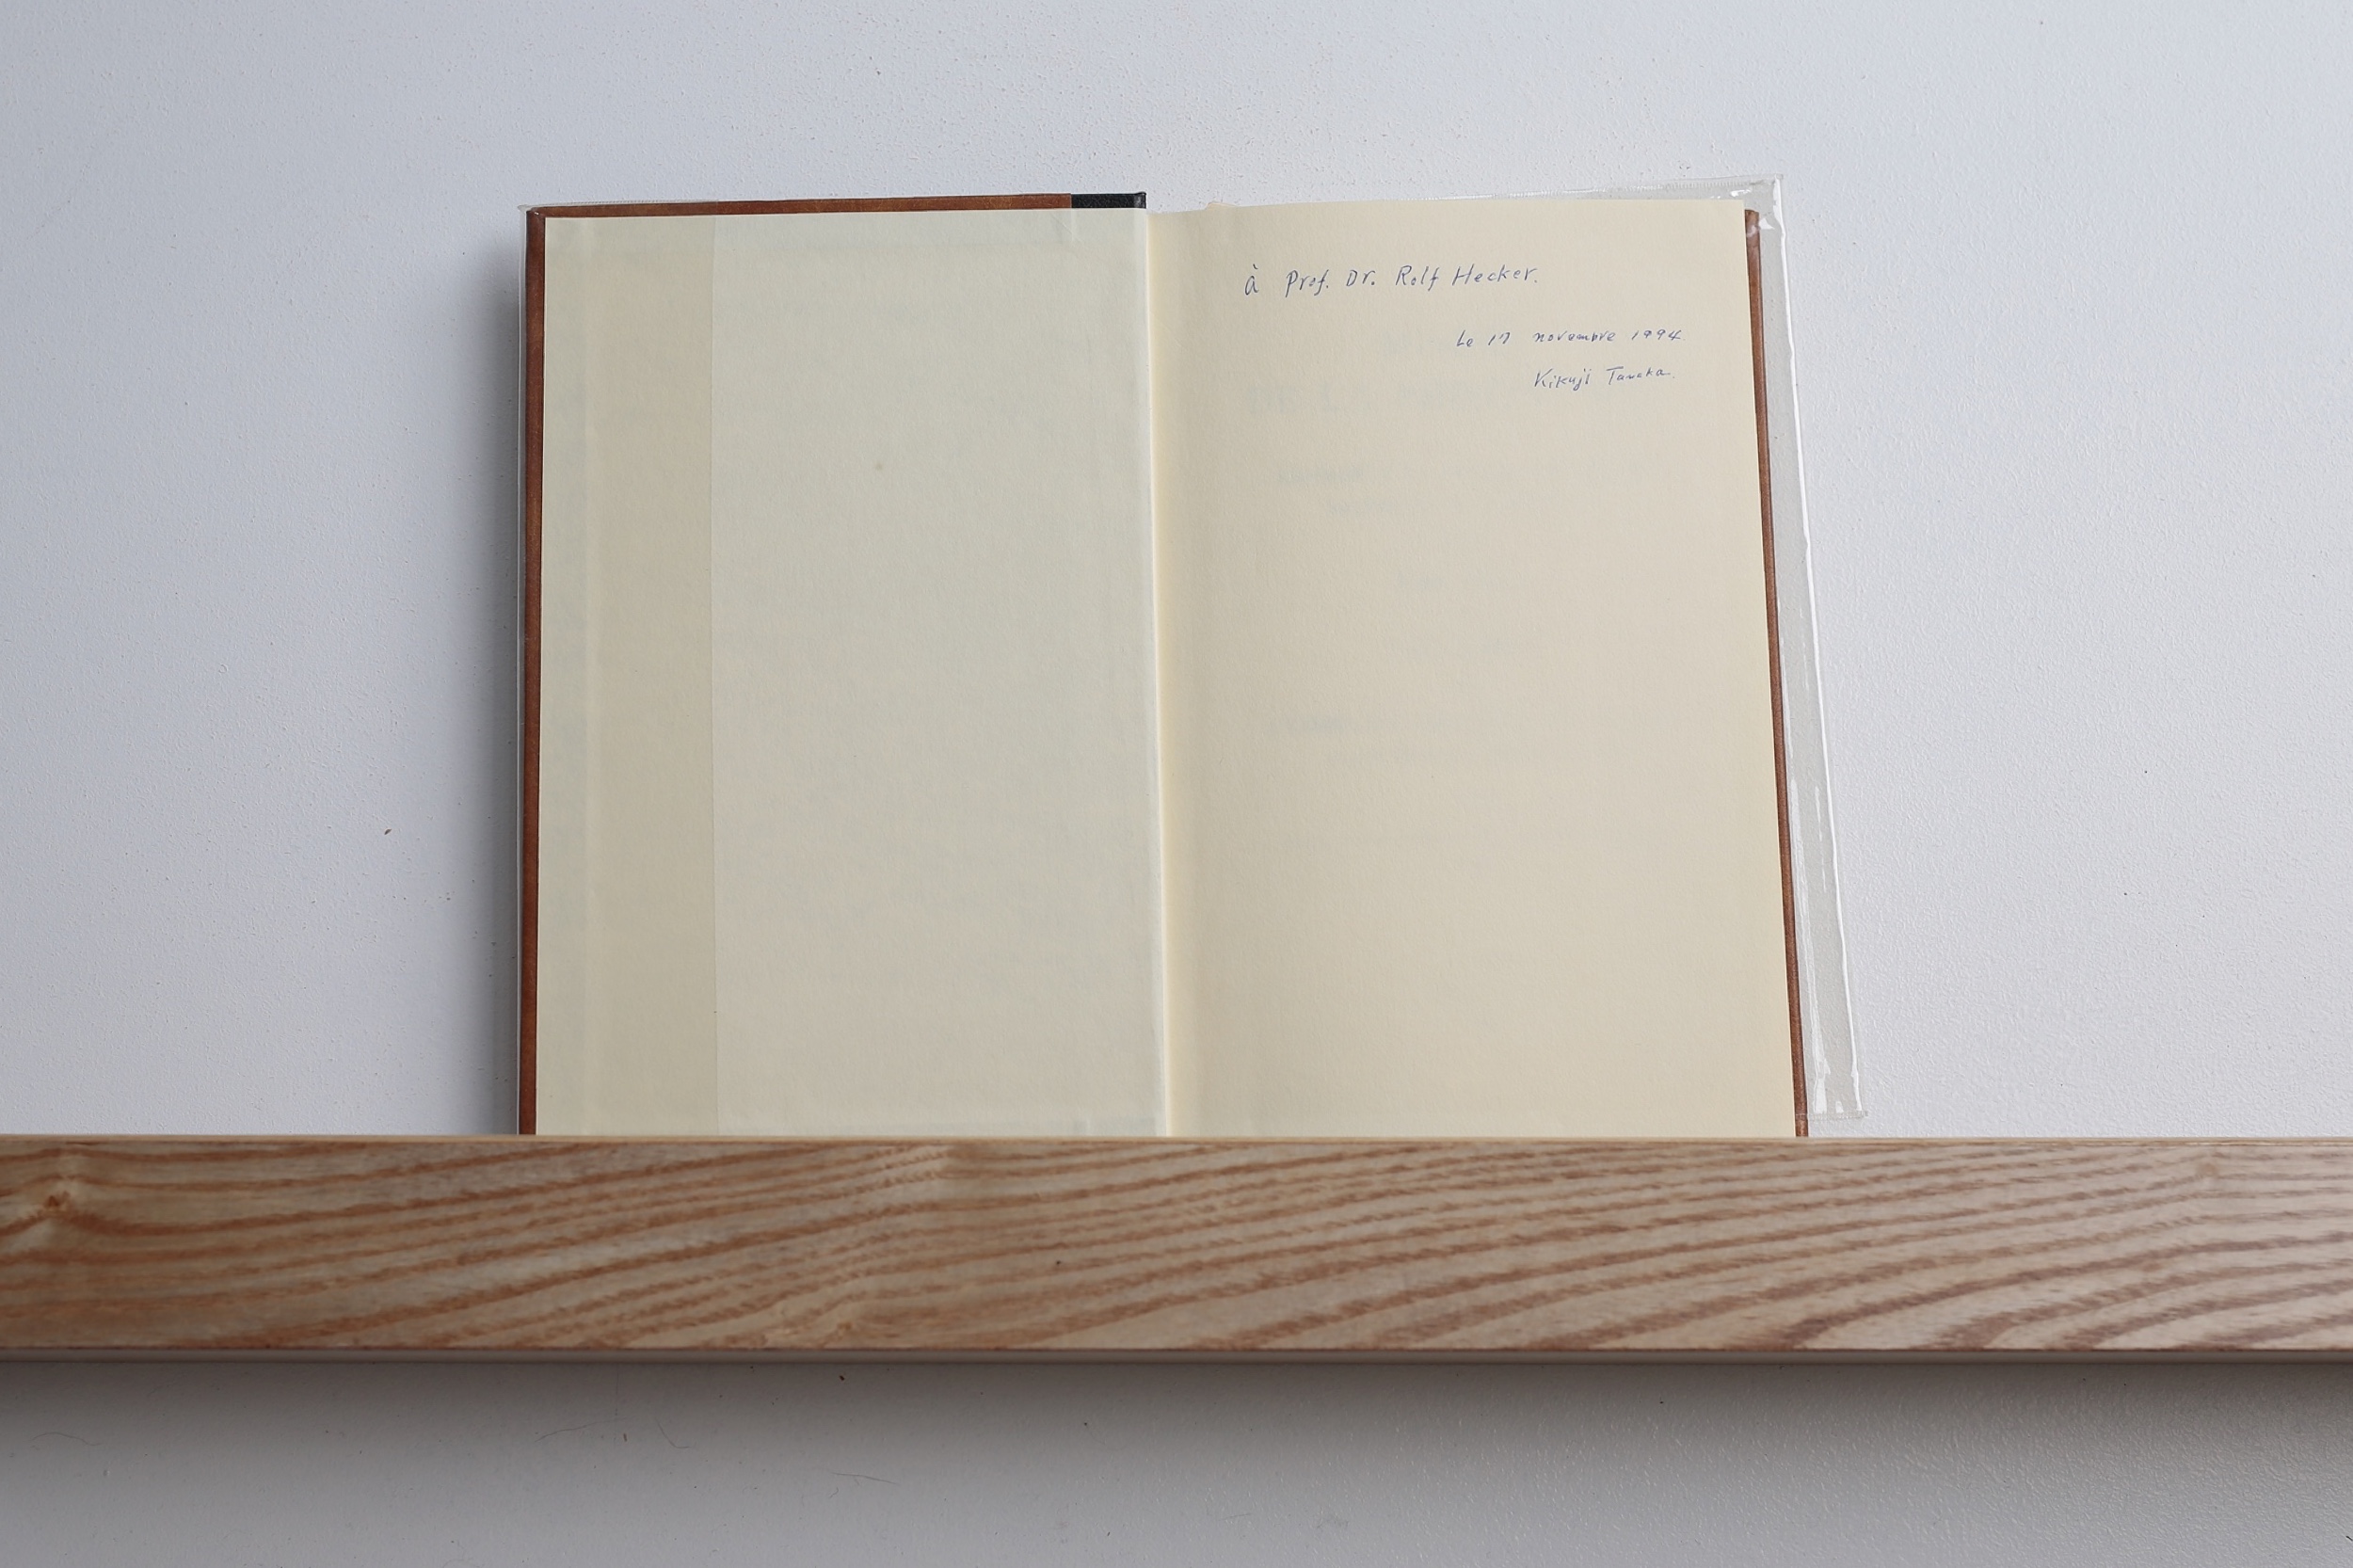 à Prof. Dr. Rolf Hecker.
Le 17 novembre 1994
Kikuji Tanaka.